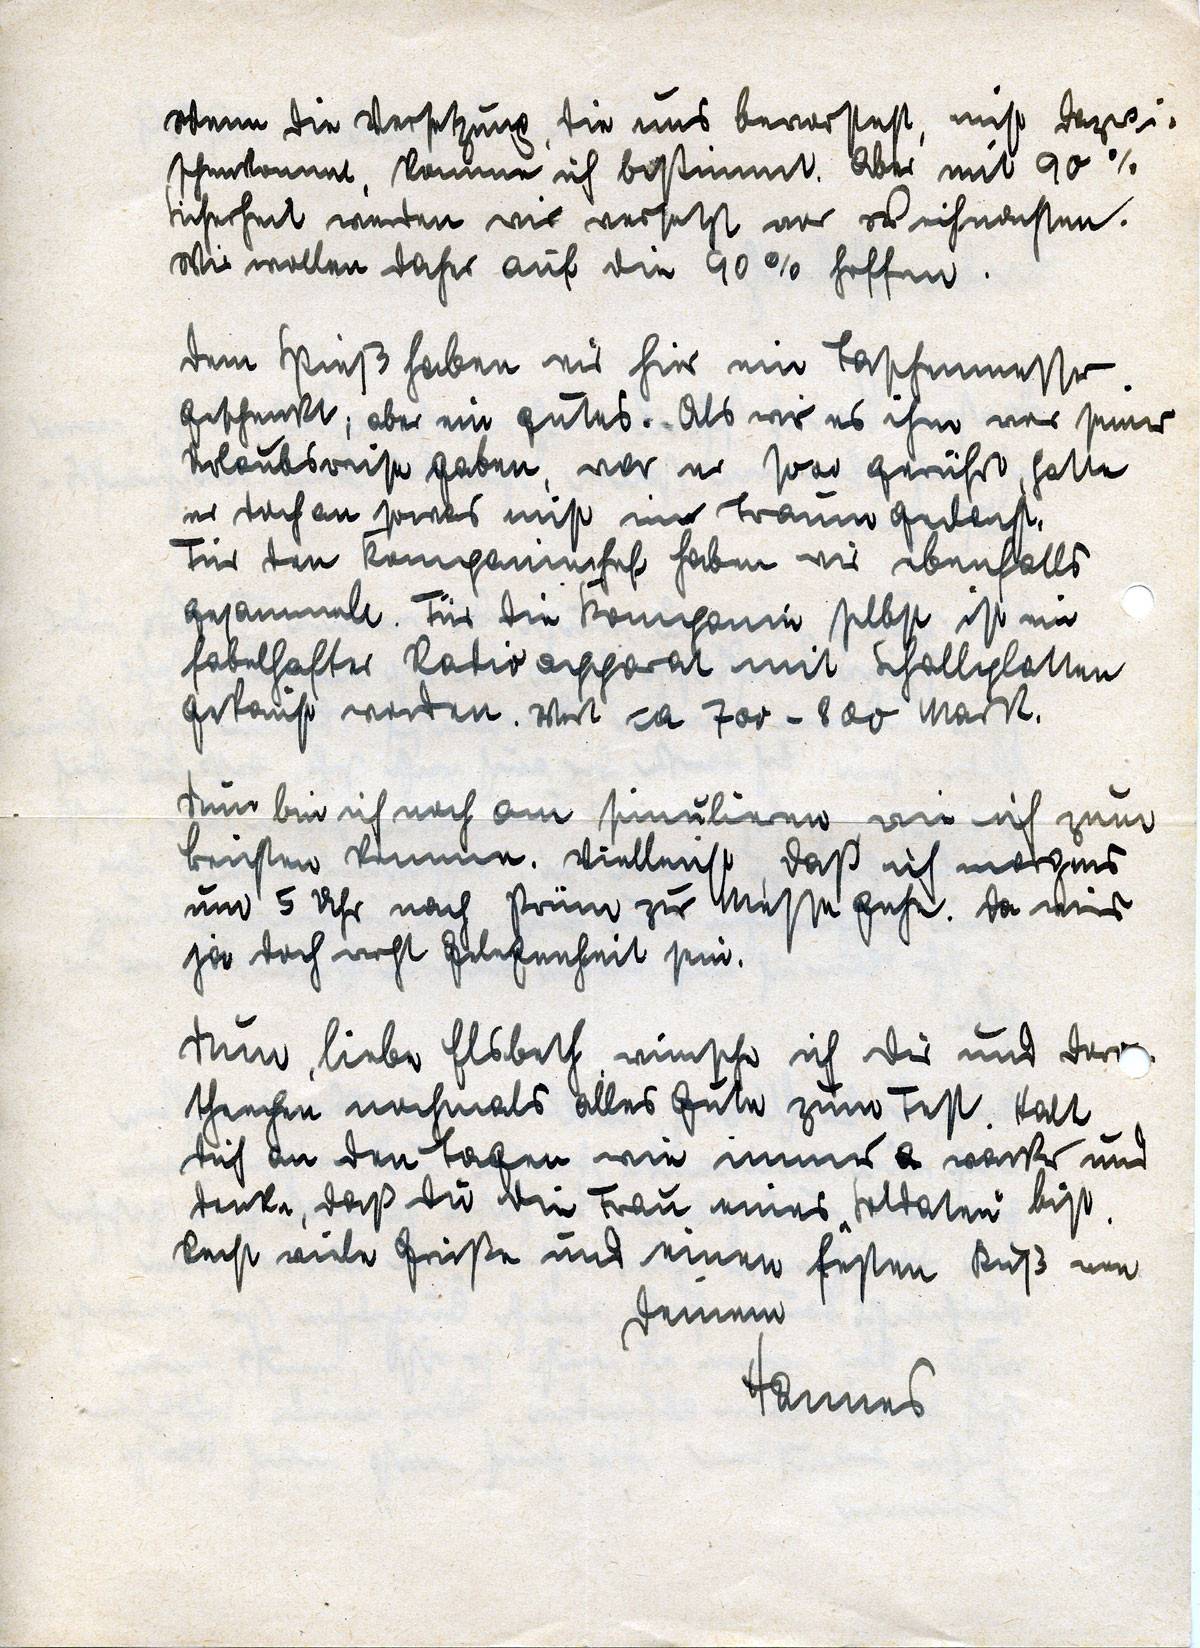 Wenn die Versetzung, die uns bevorsteht, nicht dazwi-
schenkommt, komme ich bestimmt. Aber mit 90 %
Sicherheit werden wir versetzt vor Weihnachten.
Wir wollen daher auf die 90 % hoffen.
Dem Spieß haben wir hier ein Taschenmesser
geschenkt; aber ein gutes. Als wir es ihm vor seiner
Urlaubsreise gaben, war er sooo gerührt, hatte
er doch an sowas nicht im Traum gedacht.
Für den Kompaniechef haben wir ebenfalls
gesammelt. Für die Kompanie selbst ist ein
fabelhafter Radioapparat mit Schallplatten
gekauft worden. Wert ca 700 - 800 Mark.
Nun bin ich noch am simulieren, wie ich zum
beichten komme. Vielleicht, daß ich morgens
um 5 Uhr nach Prüm zur Messe gehe. Da wird
ja doch wohl Gelegenheit sein.
Nun, liebe Elsbeth, wünsche ich Dir und Doro-
theechen nochmals alles Gute zum Fest. Halt
Dich an den Tagen wie immer wacker und
denke, daß Du die Frau eines „Soldaten" bist.
Recht viele Grüße und einen festen Kuß von
Deinem
Hannes